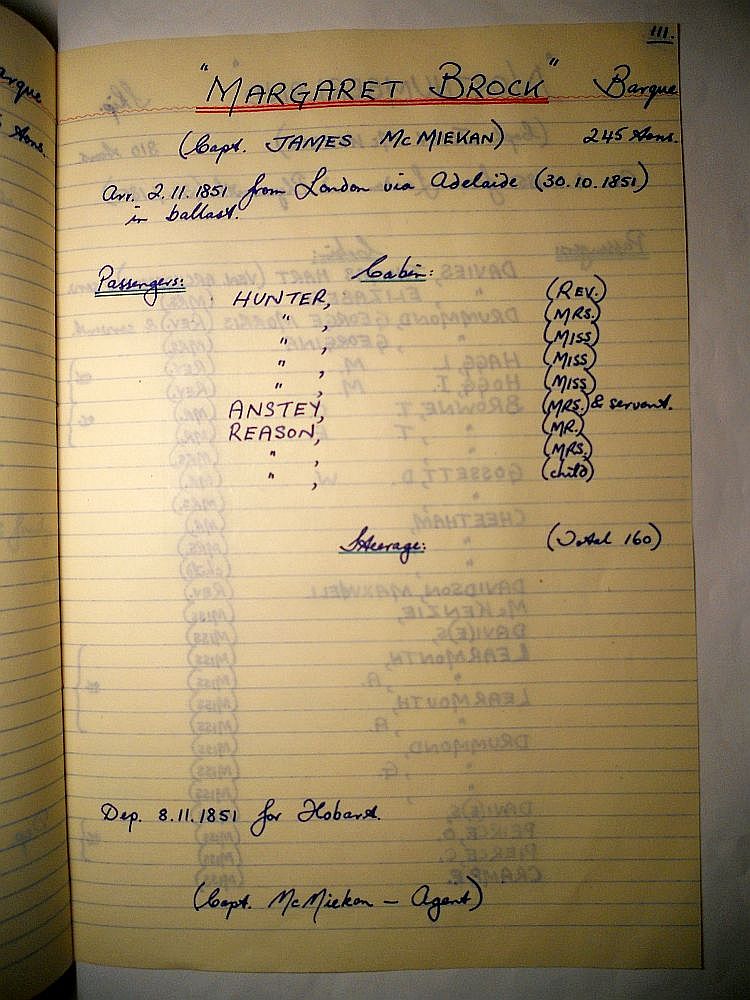 111.
"MARGARET BROCK" Barque
(Capt. JAMES McMIEKAN) 245 tons.
Arr. 2.11.1851 from London via Adelaide (30.10.1851)
in ballast.
Passengers: Cabin:
HUNTER, (REV.)
" , (MRS.)
" , (MISS)
" , (MISS)
" , (MISS)
ANSTEY, (MRS.) & servant.
REASON, (MR.)
" , (MRS.)
" , (child)
Steerage: (Total 160)
Dep. 8.11.1851 for Hobart.
(Capt. McMiekan – Agent)